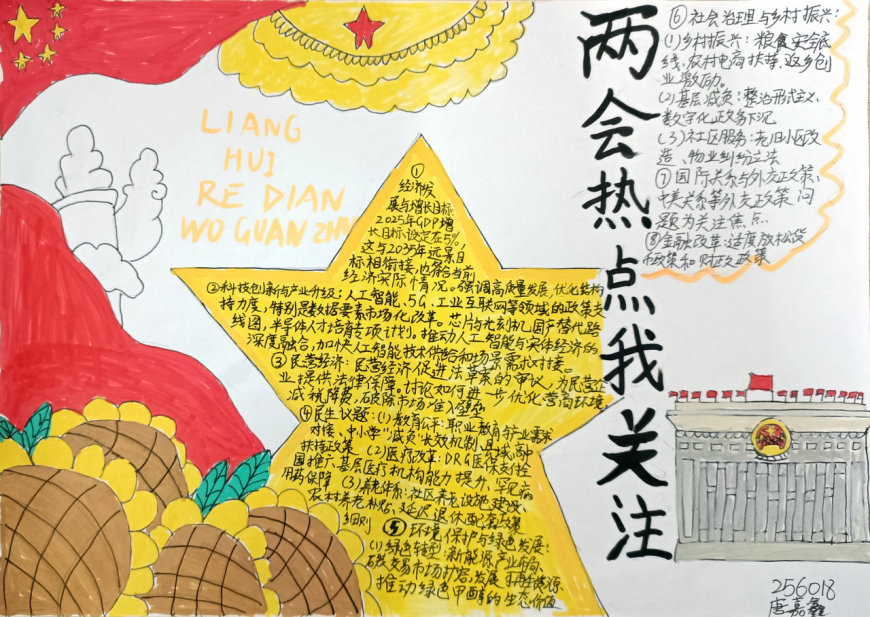 两会热点我关注
LIANG
HUI
RE DIAN
WO GUAN ZHU
①
经济发
展与增长目标
2025年GDP增
长目标设定在5%
这与2035年远景目
标相衔接,也符合当前
经济实际情况。强调高质量发展,优化结构
②科技创新与产业升级:人工智能、5G、工业互联网等领域的政策支
持力度,特别是数据要素市场化改革。芯片与光刻机国产替代路
线图,半导体人才培育专项计划。推动人工智能与实体经济的
深度融合,加快人工智能技术供给和场景需求对接。
③民营经济:民营经济促进法草案的审议,为民营企
业提供法律保障。讨论如何进一步优化营商环境,
减税降费,破除市场准入壁垒
④民生议题:(1)教育公平:职业教育与产业需求
对接、中小学“减负”长效机制、县域高中
扶持政策 (2)医疗改革:DRG医保支付全
国推广、基层医疗机构能力提升、罕见病
用药保障 (3)养老体系:社区养老设施建设、
农村养老补贴、延迟退休配套政策
细则
⑤环境保护与绿色发展:
(1)绿色转型:新能源产业布局、
碳交易市场扩容,发展可再生能源
推动绿色甲醇的生态价值
⑥社会治理与乡村振兴:
(1)乡村振兴:粮食安全底
线、农村电商扶持、返乡创
业激励。
(2)基层减负:整治形式主义、
数字化政务下沉
(3)社区服务:老旧小区改
造、物业纠纷立法
⑦国际关系与外交政策:
中美关系等外交政策问
题为关注焦点
⑧金融改革:适度放松货
币政策和财政政策
256018
唐嘉鑫